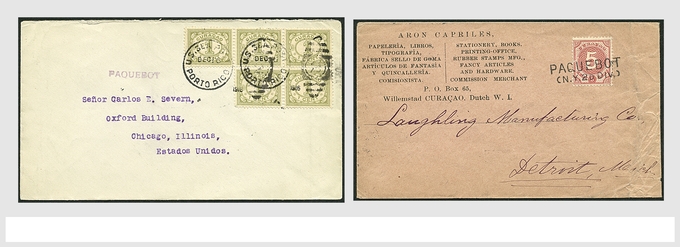 U.S. SEA P.O.
DEC 10
PORTO RICO
PAQUEBOT
Señor Carlos E. Severn,
Oxford Building,
Chicago, Illinois,
Estados Unidos.
ARON CAPRILES,
PAPELERÍA, LIBROS,
TIPOGRAFÍA,
FÁBRICA SELLO DE GOMA
ARTÍCULOS DE FANTASÍA
Y QUISCALLERÍA.
COMISIONISTA,
STATIONERY, BOOKS,
PRINTING-OFFICE,
RUBBER STAMPS MFG.,
FANCY ARTICLES
AND HARDWARE.
COMMISSION MERCHANT
P. O. Box 65,
Willemstad CURAÇAO, Dutch W. I.
5
PAQUEBOT
(N.Y. 2D DIV.)
Laughling Manufacturing Co.
Detroit, Mich.